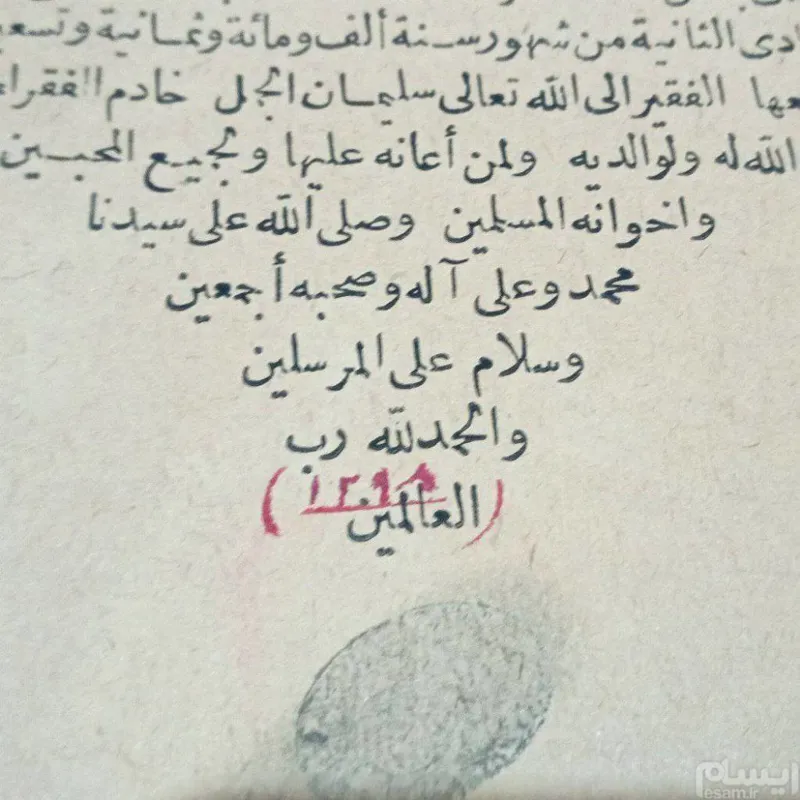 ادى الثانية من شهور سنة ألف ومائة وثمانية وتسعي
عها الفقير الى الله تعالى سليمان الجمل خادم الفقراء
الله له ولوالديه ولمن أعانه عليها ولجميع المحبين
واخوانه المسلمين وصلى الله على سيدنا
محمد وعلى آله وصحبه أجمعين
وسلام على المرسلين
والحمد لله رب
العالمين
(١٢٩٨)
ايسام
esam.ir